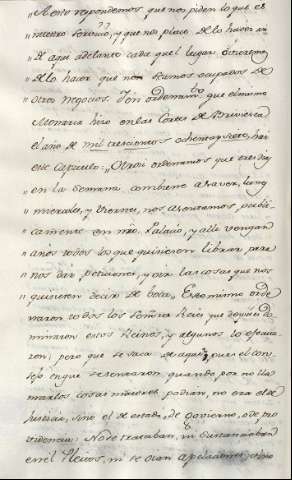 „ A esto respondemos que nos piden lo que es
„ nuestro servicio, y que nos place de lo hacer assi
„ de aqui adelante cada que el lugar
„ de lo hacer que non seamos ocupados de
„ otros negocios. Y en ordenamto. que el mismo
Monarca hizo en las Cortes de Briviesca
el año de mil trescientos ochenta y siete, hai
este Capitulo: „ Otrosi ordenamos que tres dias
„ en la semana, combiene a saver, Lunes
„ miercoles, y Viernes, nos asentemos publi-
„ camente en nro. Palacio, y alli vengan
„ á nos todos los que quisieren librar, para
„ nos dár peticiones, y oir las cosas que nos
„ quisieren decir de boca„. Esto mismo orde-
naron todos los Señores Reies que despues do-
minaron estos Reinos, y algunos lo egecuta-
ron; pero que se saca de aqui? pues el con-
sejo en que se sentaron, quando por no lla-
marlos cosas maiores podian, no era el de
Justicia, sino el de estado, de govierno, ó de pro-
videncia: No se trataban, ni sustanciaban
en él Pleitos, ni se oian apelaciones, como